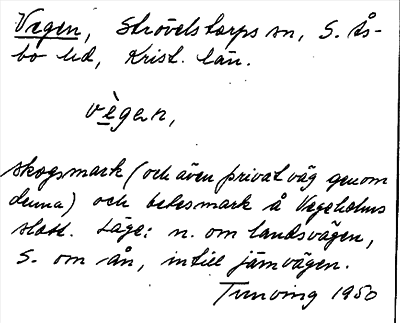 Vegen, Strövelstorps sn, S. Ås-
bo hd, Krist. län.
vègen,
skogsmark (och även privat väg genom
denna) och betesmark å Vegeholms
slott. Läge: n. om landsvägen,
S. om ån, intill järnvägen.
Tunving 1950